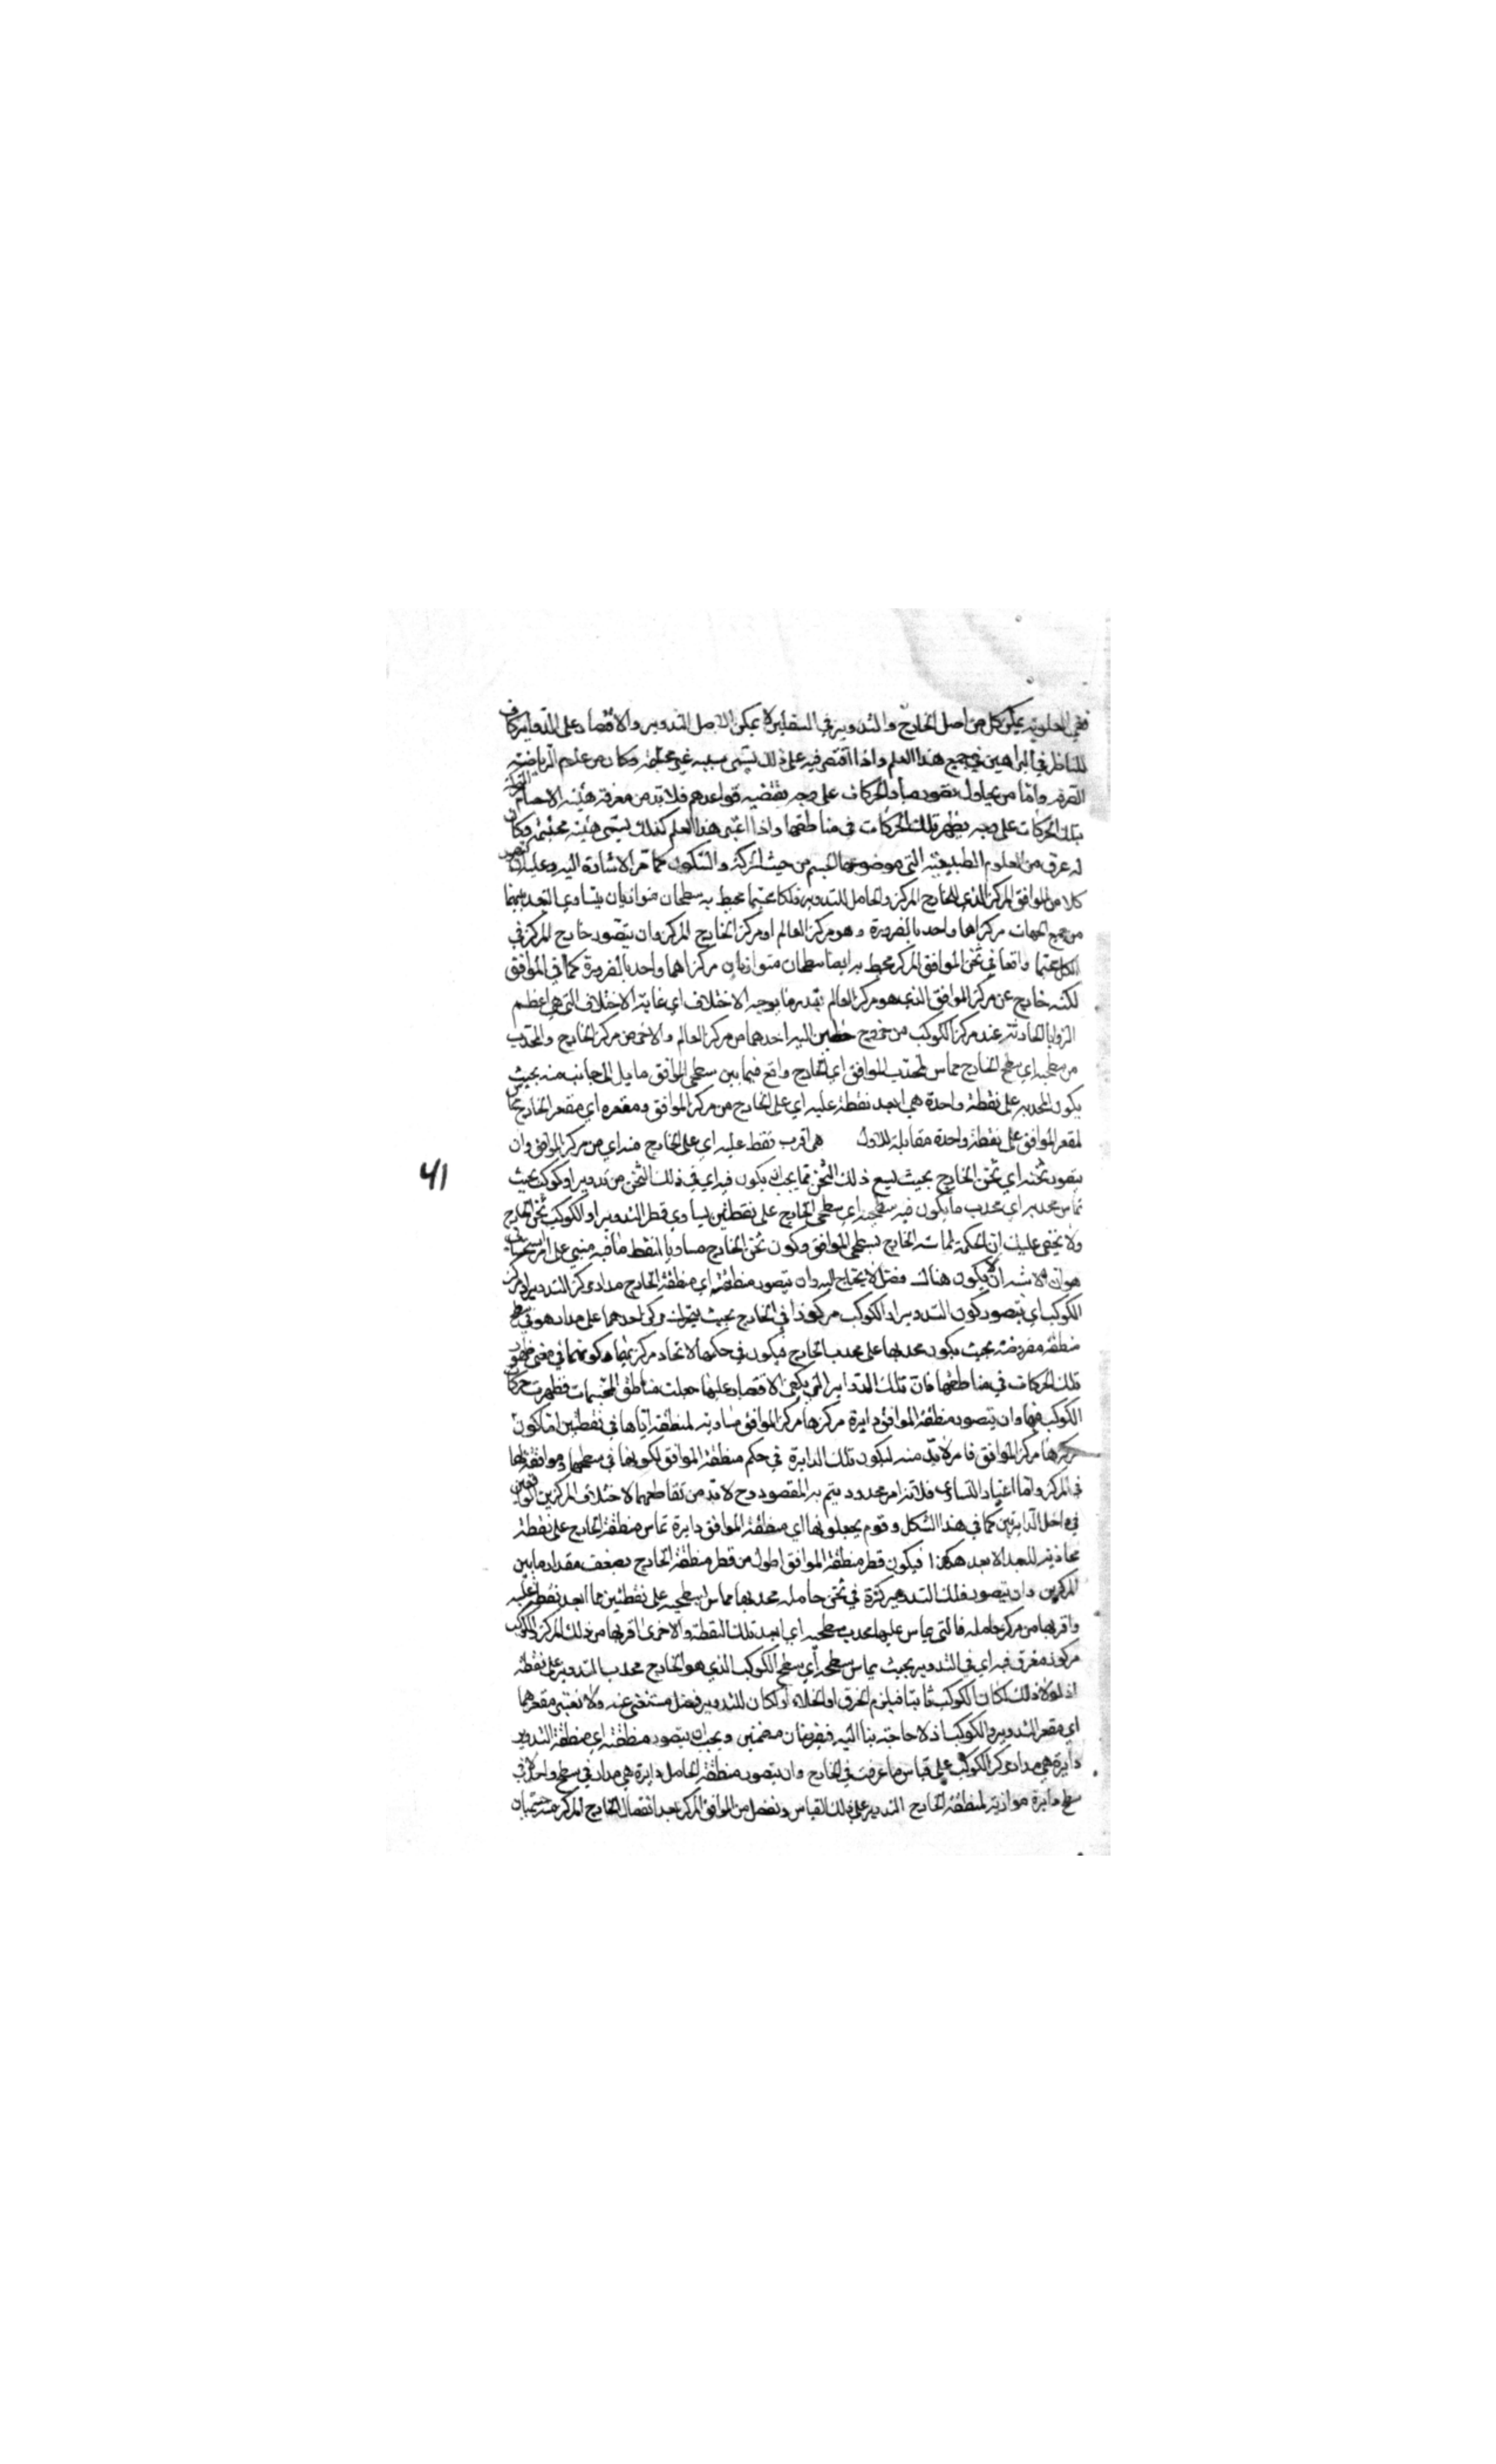 ففي العلوية يمكن كل من اصل الخارج والتدوير في السفليين لا يمكن الا اصل التدوير والاقتصار على الدواير كاف
للناظر في البراهين في جميع هذا العلم واذا اقتصر فيه على ذلك يسمى هيئة غير مجسمة وكان من علوم الرياضية
الصرفة واما من يحاول تصور مبادي الحركات على وجه يقتضيه قواعدهم فلا بد من معرفة هيئة الاجسام المتحركة
بتلك الحركات على وجه يظهر تلك الحركات في مناطقها واذا اعتبر هذا العلم كذلك يسمى هيئة مجسمة وكان
له عرق من العلوم الطبيعية التي موضوعها الجسم من حيث الحركة والسكون كما مر الاشارة اليه وعليه ان يتصور
كلا من الموافق المركز الذي الخارج المركز والحامل للتدوير فلكا مجسما محيط به سطحان متوازيان يتساوى البعد بينهما
من جميع الجهات مركزاها واحد بالضرورة وهو مركز العالم او مركز الخارج المركز وان يتصور خارج المركز في
الكل مجسما واقعا في ثخن الموافق المركز محيط به ايضا سطحان متوازيان مركزاهما واحد بالضرورة كما في الموافق
لكنه خارج عن مركز الموافق الذي هو مركز العالم بقدر ما يوجبه الاختلاف اي غاية الاختلاف التي هي اعظم
الزوايا الحادثة عند مركز الكوكب من خروج خطين اليه احدهما من مركز العالم والاخر من مركز الخارج والمحدب
من سطحيه اي سطح الخارج مماس لمحدب الموافق اي الخارج واقع فيما بين سطحي الموافق مايل الى جانب منه بحيث
يكون المحدب على نقطة واحدة هي ابعد نقطة عليه اي على الخارج من مركز الموافق ومقعره اي مقعر الخارج مماس
لمقعر الموافق على نقطة واحدة مقابلة للاول هي اقرب نقطة عليه اي على الخارج منه اي من مركز الموافق وان
يتصور ثخنه اي ثخن الخارج بحيث يسع ذلك الثخن ما يجب ان يكون فيه اي في ذلك الثخن من تدوير او كوكب بحيث
تماس محدبه اي محدب ما يكون فيه سطحيه اي سطحي الخارج على نقطتين يساوي قطر التدوير او الكوكب ثخن الخارج
ولا يخفى عليك ان الحكم بمماسة الخارج بسطحي الموافق وكون ثخن الخارج مساويا لقطر ما فيه مبني على امر استحساني
هو ان الاشبه ان لا يكون هناك فضل لا يحتاج اليه وان يتصور منطقته اي منطقة الخارج مدار مركز التدوير او مركز
الكوكب اي يتصور كون التدوير او الكوكب مركوزا في الخارج بحيث يتحرك مركز احدهما على مدار هو في سطح
منطقة مفروضة بحيث يكون محدبها على محدب الخارج فيكون في حكمها لاتحاد مركزيهما وكونهما في معنى ظهور
تلك الحركات في مناطقها فان تلك الدواير التي يكفي الاقتصار عليها جعلت مناطق المجسمات فظهرت حركات
الكوكب فيها وان يتصور منطقة الموافق دايرة مركزها مركز الموافق مساوية لمنطقة اياها في نقطتين اما كون
مركزها مركز الموافق فامر لا بد منه ليكون تلك الدايرة في حكم منطقة الموافق لكونها في سطحها وموافقة لها
في المركز واما اعتبار التساوي فلانه امر محدود يتم به المقصود وح لا بد من تقاطعهما لاختلاف المركزين الواقعين
في داخل الدايرتين كما في هذا الشكل وقوم يجعلونها اي منطقة الموافق دايرة تماس منطقة الخارج على نقطة
محاذية للبعد الابعد هكذا فيكون قطر منطقة الموافق اطول من قطر منطقة الخارج بضعف مقدار ما بين
المركزين وان يتصور فلك التدوير كرة في ثخن حامله محدبها مماس لسطحيه على نقطتين هما ابعد نقطة عليه
واقربها من مركز حامله فالتي يماس عليها محدب سطحيه اي ابعد تلك النقطة والاخرى اقربها من ذلك المركز والكوكب
مركوز مغرق فيه اي في التدوير بحيث يماس سطحه اي سطح الكوكب الذي هو الخارج محدب التدوير على نقطة
اذ لولا ذلك لكان الكوكب ثابتا فيلزم الخرق او الخلاء او لكان للتدوير فضل مستغنى عنه ولا نعتبر مقعرهما
اي مقعر التدوير والكوكب اذ لا حاجة بنا اليه فيفرضان مصمتين ويجب ان يتصور منطقته اي منطقة التدوير
دايرة هي مدار مركز الكوكب على قياس ما عرفت في الخارج وان يتصور منطقة الحامل دايرة هي مدار في سطح واحد لا في
سطح دايرة موازية لمنطقة الخارج التدوير على ذلك القياس ويفضل من الموافق المركز بعد انفصال الخارج المركز منه متممان
41